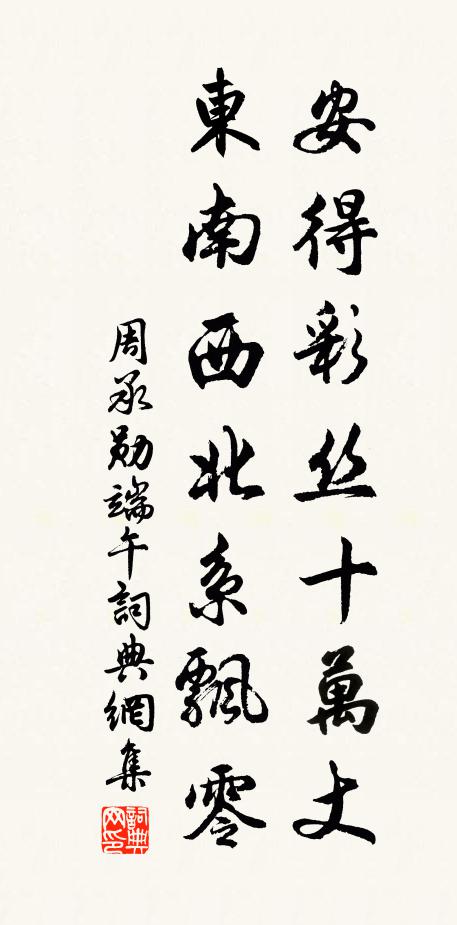 安得彩丝十萬丈
東南西北系飄零
周承勛端午詞典網集
詞典網印